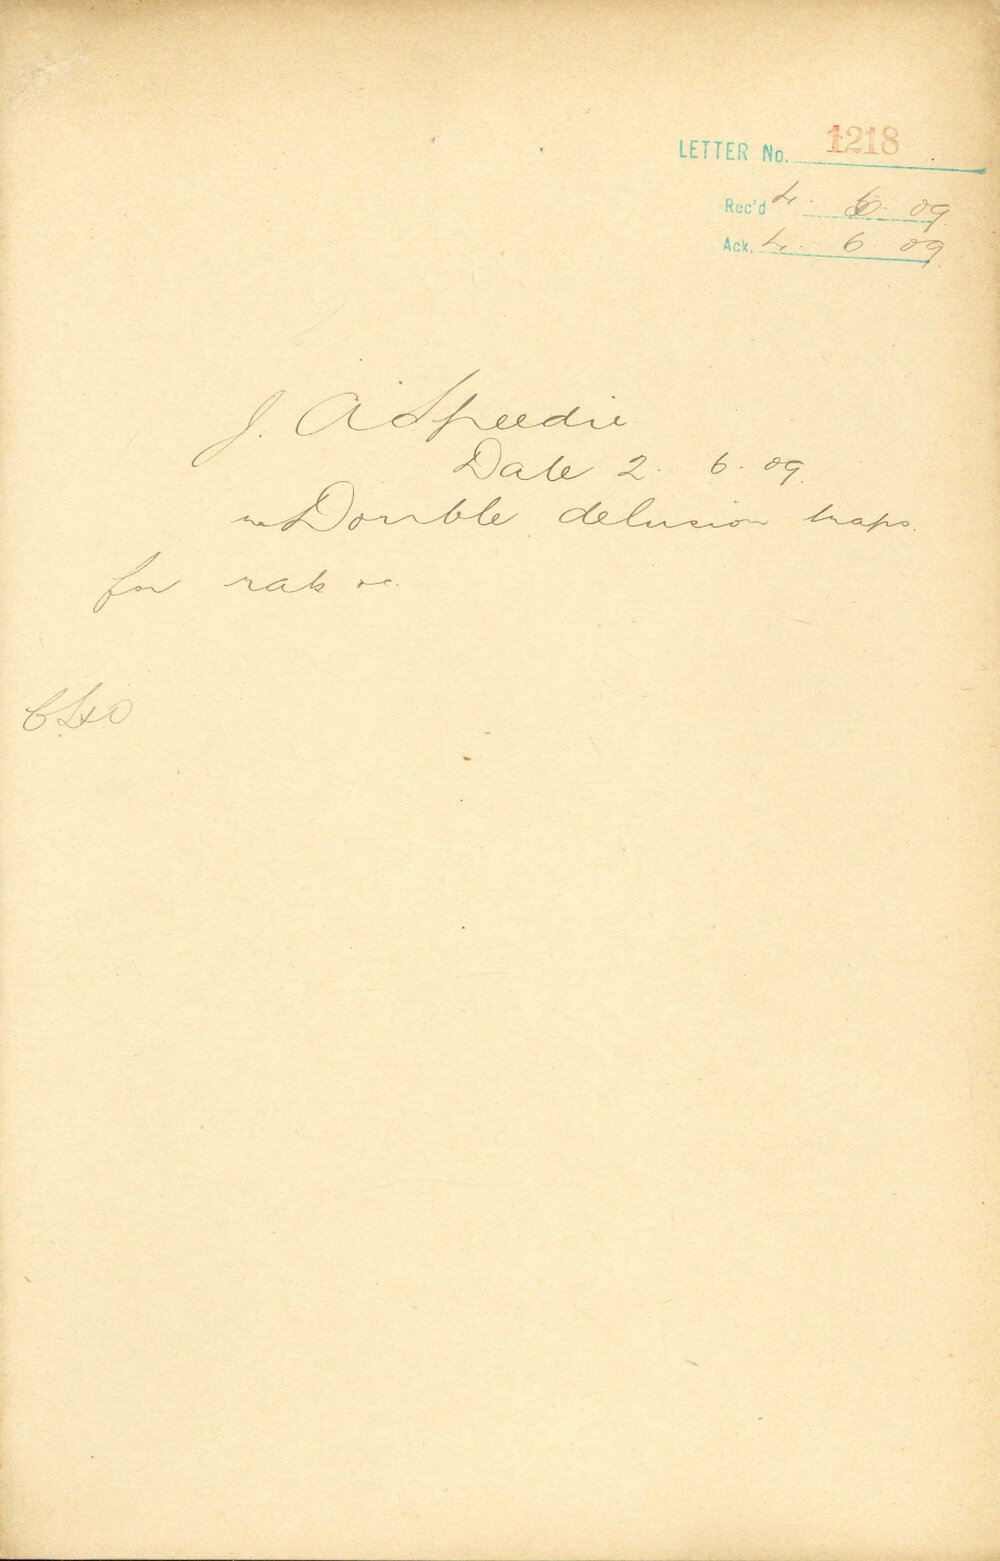 LETTER No. 1218
Rec'd 4. 6. 09
Ack. 4. 6. 09
J. A. Speedie
Date 2. 6. 09.
re Double delusion traps
for rats &c.